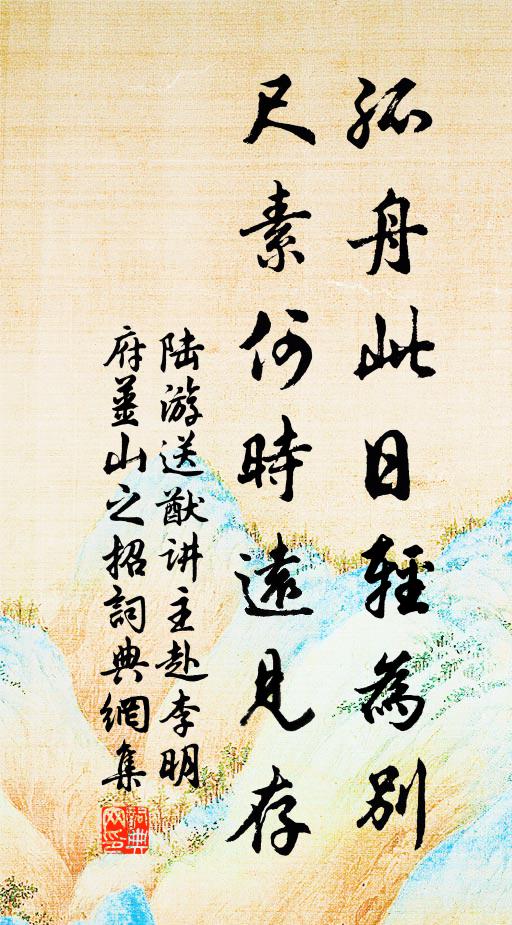 孤舟此日輕為別
尺素何時遠見存
陆游送猷讲主赴李明
府薑山之招詞典網集
詞典
网印